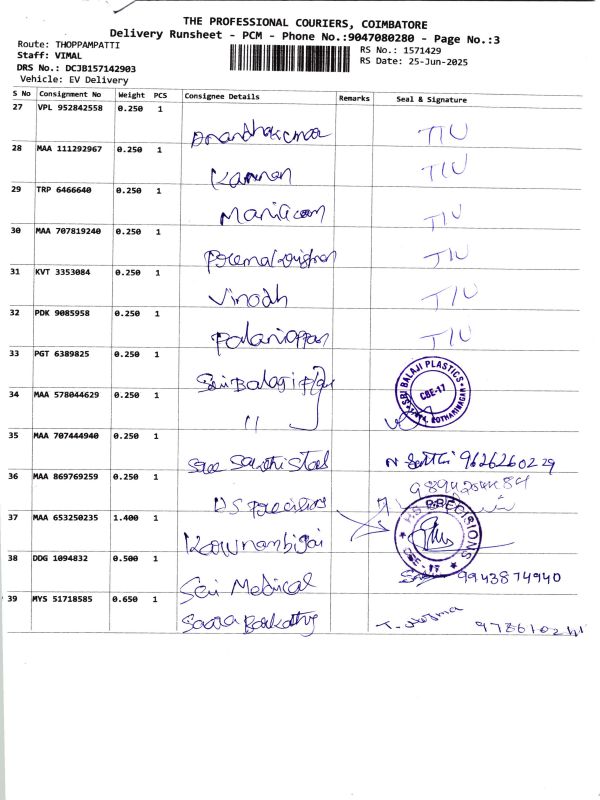 THE PROFESSIONAL COURIERS, COIMBATORE
Delivery Runsheet - PCM - Phone No.:9047080280 - Page No.:3
Route: THOPPAMPATTI
Staff: VIMAL
DRS No.: DCJB157142903
Vehicle: EV Delivery
RS No.: 1571429
RS Date: 25-Jun-2025
S No Consignment No Weight PCS Consignee Details Remarks Seal & Signature
27 VPL 952842558 0.250 1
Anandhakumar TIU
28 MAA 111292967 0.250 1
Kannan TIU
29 TRP 6466640 0.250 1
TIU
30 MAA 707819240 0.250 1
TIU
31 KVT 3353084 0.250 1
Vinodh TIU
32 PDK 9085958 0.250 1
Palaniappan TIU
33 PGT 6389825 0.250 1
Sri Balaji
SRI BALAJI PLASTICS
CBE-17
34 MAA 578044629 0.250 1
"
35 MAA 707444940 0.250 1
Sree Sakthi Steel 9626260229
36 MAA 869769259 0.250 1
HS Precisions
H.S PRECISIONS
CBE - 17
37 MAA 653250235 1.400 1
38 DDG 1094832 0.500 1
Sri Medical 9943874940
39 MYS 51718585 0.650 1